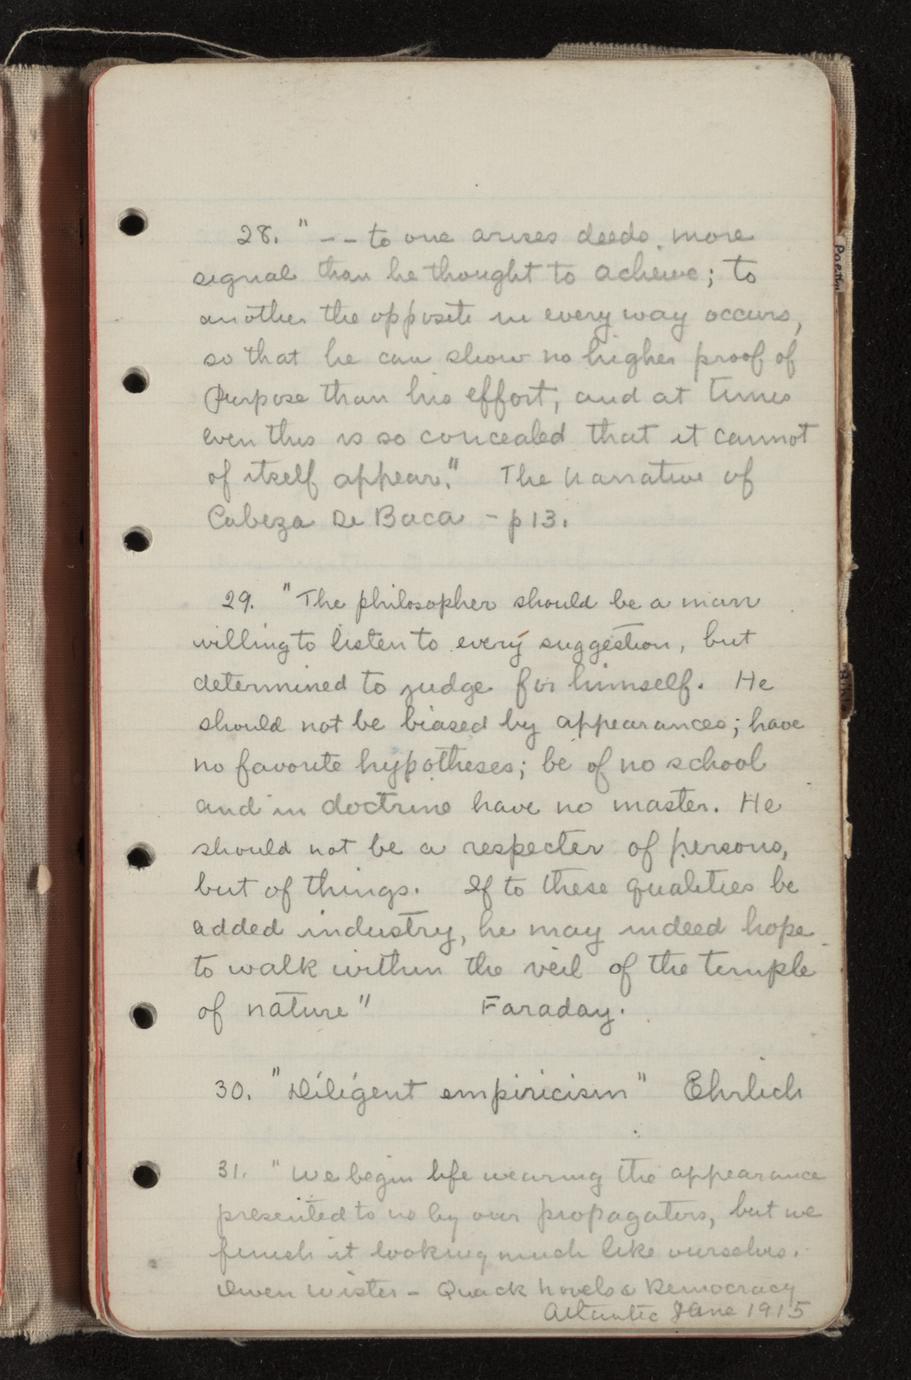 28. "-- to one arises deeds more
signal than he thought to achieve; to
another the opposite in every way occurs,
so that he can show no higher proof of
Purpose than his effort; and at times
even this is so concealed that it cannot
of itself appear." The Narrative of
Cabeza De Baca - p 13.
29. "The philosopher should be a man
willing to listen to every suggestion, but
determined to judge for himself. He
should not be biased by appearances; have
no favorite hypotheses; be of no school
and in doctrine have no master. He
should not be a respecter of persons,
but of things. If to these qualities be
added industry, he may indeed hope
to walk within the veil of the temple
of nature" Faraday.
30. "Diligent empiricism" Ehrlich
31. "We begin life wearing the appearance
presented to us by our propagators, but we
finish it looking much like ourselves.
Owen Wister - Quack Novels & Democracy
Atlantic June 1915